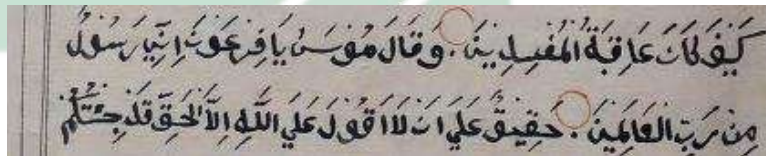 كَيْفَ كَانَ عَاقِبَةُ الْمُفْسِدِينَ. وَقَالَ مُوسَى يَافِرْعَوْنَ اِنِّي رَسُولٌ
مِنْ رَبِّ الْعَالَمِينَ. حَقِيقٌ عَلَي اَنْ لَا اَقُولَ عَلَي اللَّهِ اِلَّا الْحَقَّ قَدْ جِئْتُكُمْ